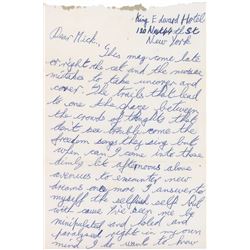 King Edward Hotel
120 West 44th St
New York
Dear Mick,
This may come late
or right the cat and the mouse
mistakes to take uncover and
cover. The trails that lead
to one the change between
the crowds of thoughts that
don't see humbly come the
freedom songs they sing but
who can I came into those
dimly lit afternoons alone
avenues to encounter new
dreams once more I answer to
myself the selfish self but
with cause I've seen me by
manipulated and foled and
paralysed right in my own
mind I do want to know